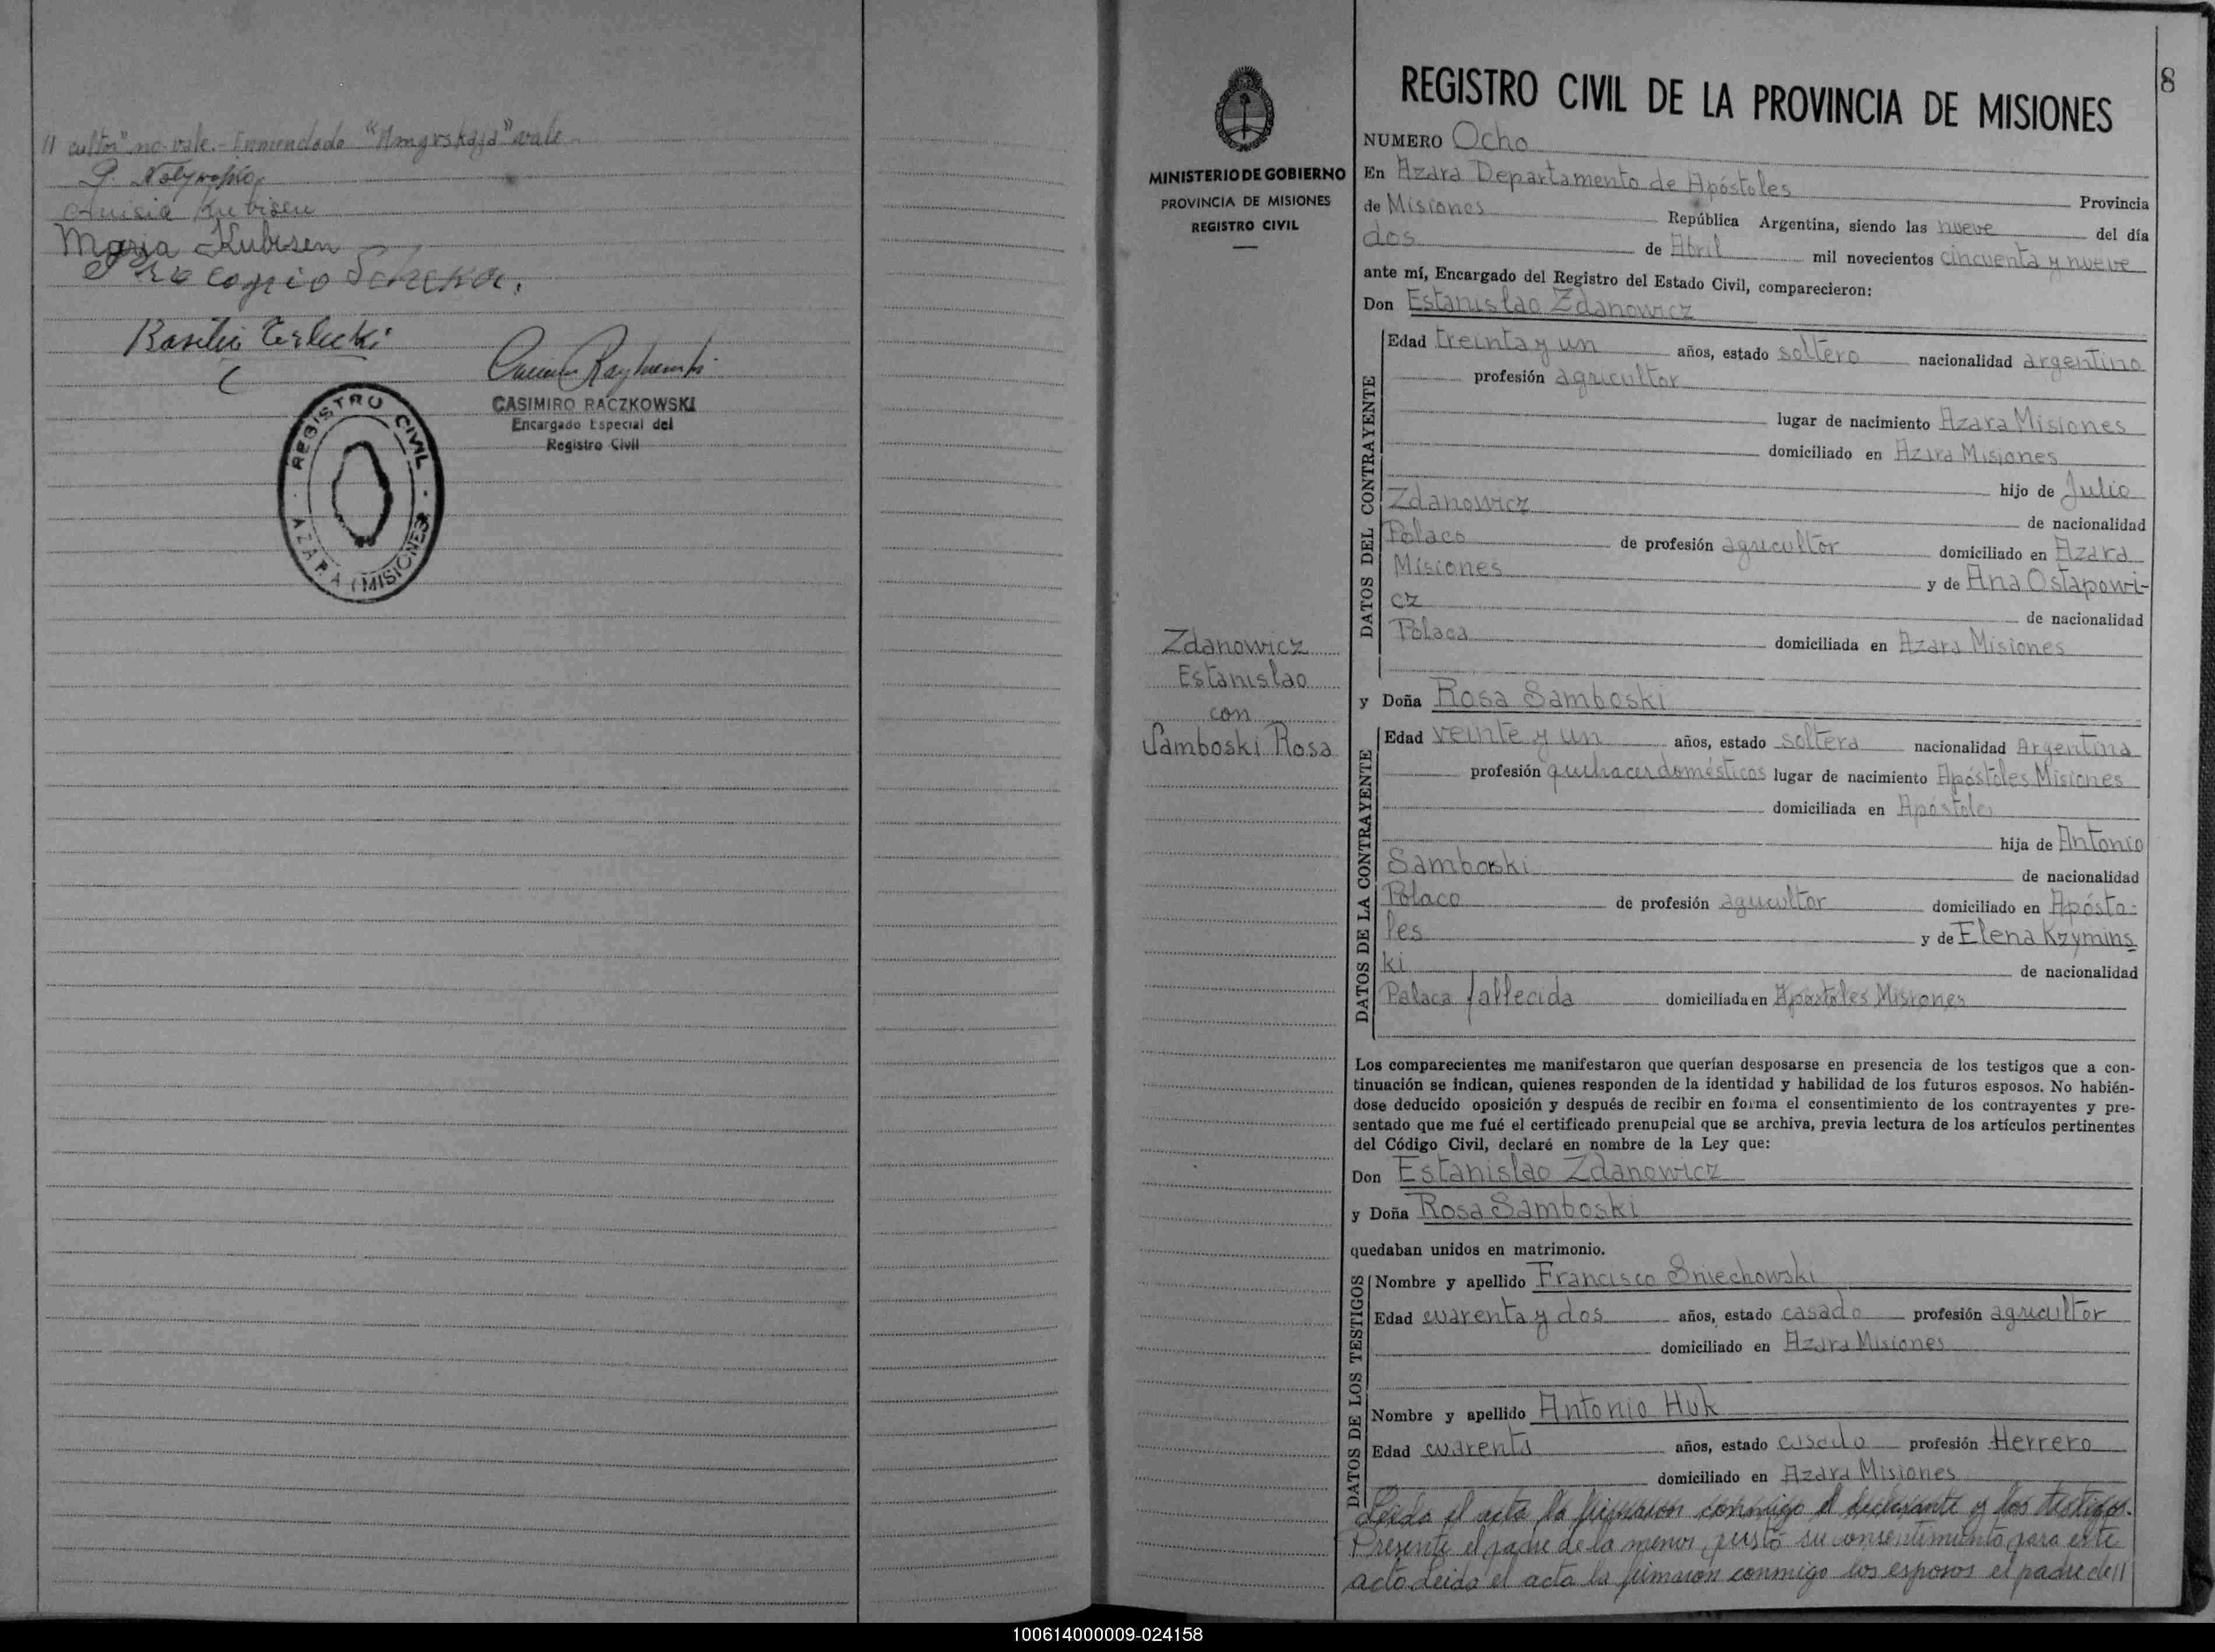 // cultor" no vale.- Enmendado "Amgrskaja" vale.-
Maria Kubisen
Basilio Terlecki
CASIMIRO RACZKOWSKI
Encargado Especial del
Registro Civil
REGISTRO CIVIL
AZARA (MISIONES)
MINISTERIO DE GOBIERNO
PROVINCIA DE MISIONES
REGISTRO CIVIL
Zdanowicz
Estanislao
con
Samboski Rosa
8
REGISTRO CIVIL DE LA PROVINCIA DE MISIONES
NUMERO Ocho
En Azara Departamento de Apóstoles Provincia
de Misiones República Argentina, siendo las nueve del día
dos de Abril mil novecientos cincuenta y nueve
ante mí, Encargado del Registro del Estado Civil, comparecieron:
Don Estanislao Zdanowicz
DATOS DEL CONTRAYENTE
Edad treinta y un años, estado soltero nacionalidad argentino
profesión agricultor
lugar de nacimiento Azara Misiones
domiciliado en Azara Misiones
hijo de Julio
Zdanowicz de nacionalidad
Polaco de profesión agricultor domiciliado en Azara
Misiones y de Ana Ostapowi-
cz de nacionalidad
Polaca domiciliada en Azara Misiones
y Doña Rosa Samboski
DATOS DE LA CONTRAYENTE
Edad veinte y un años, estado soltera nacionalidad Argentina
profesión quehacer domésticos lugar de nacimiento Apóstoles Misiones
domiciliada en Apóstoles
hija de Antonio
Samboski de nacionalidad
Polaco de profesión agricultor domiciliado en Apósto-
les y de Elena Krzymins
ki de nacionalidad
Polaca fallecida domiciliada en Apóstoles Misiones
Los comparecientes me manifestaron que querían desposarse en presencia de los testigos que a con-
tinuación se indican, quienes responden de la identidad y habilidad de los futuros esposos. No habién-
dose deducido oposición y después de recibir en forma el consentimiento de los contrayentes y pre-
sentado que me fué el certificado prenupcial que se archiva, previa lectura de los artículos pertinentes
del Código Civil, declaré en nombre de la Ley que:
Don Estanislao Zdanowicz
y Doña Rosa Samboski
quedaban unidos en matrimonio.
DATOS DE LOS TESTIGOS
Nombre y apellido Francisco Sniechowski
Edad cuarenta y dos años, estado casado profesión agricultor
domiciliado en Azara Misiones
Nombre y apellido Antonio Huk
Edad cuarenta años, estado casado profesión Herrero
domiciliado en Azara Misiones
Leida el acta la firmaron conmigo el declarante y los testigos.
Presente el padre de la menor prestó su consentimiento para este
acto. Leida el acta la firmaron conmigo los esposos el padre de //
100614000009-024158